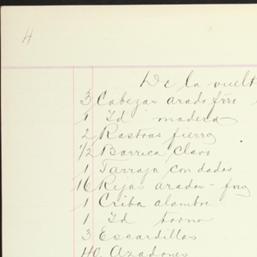 4
De la vuelta
3 Cabezas arado fro
1 Id madera
2 Rastras fierro
1/2 Barrica Clavos
1 Tarraja con dados
16 Rejas arados
1 Criba alambre
1 Id
3 Escardillas
40 Azadones